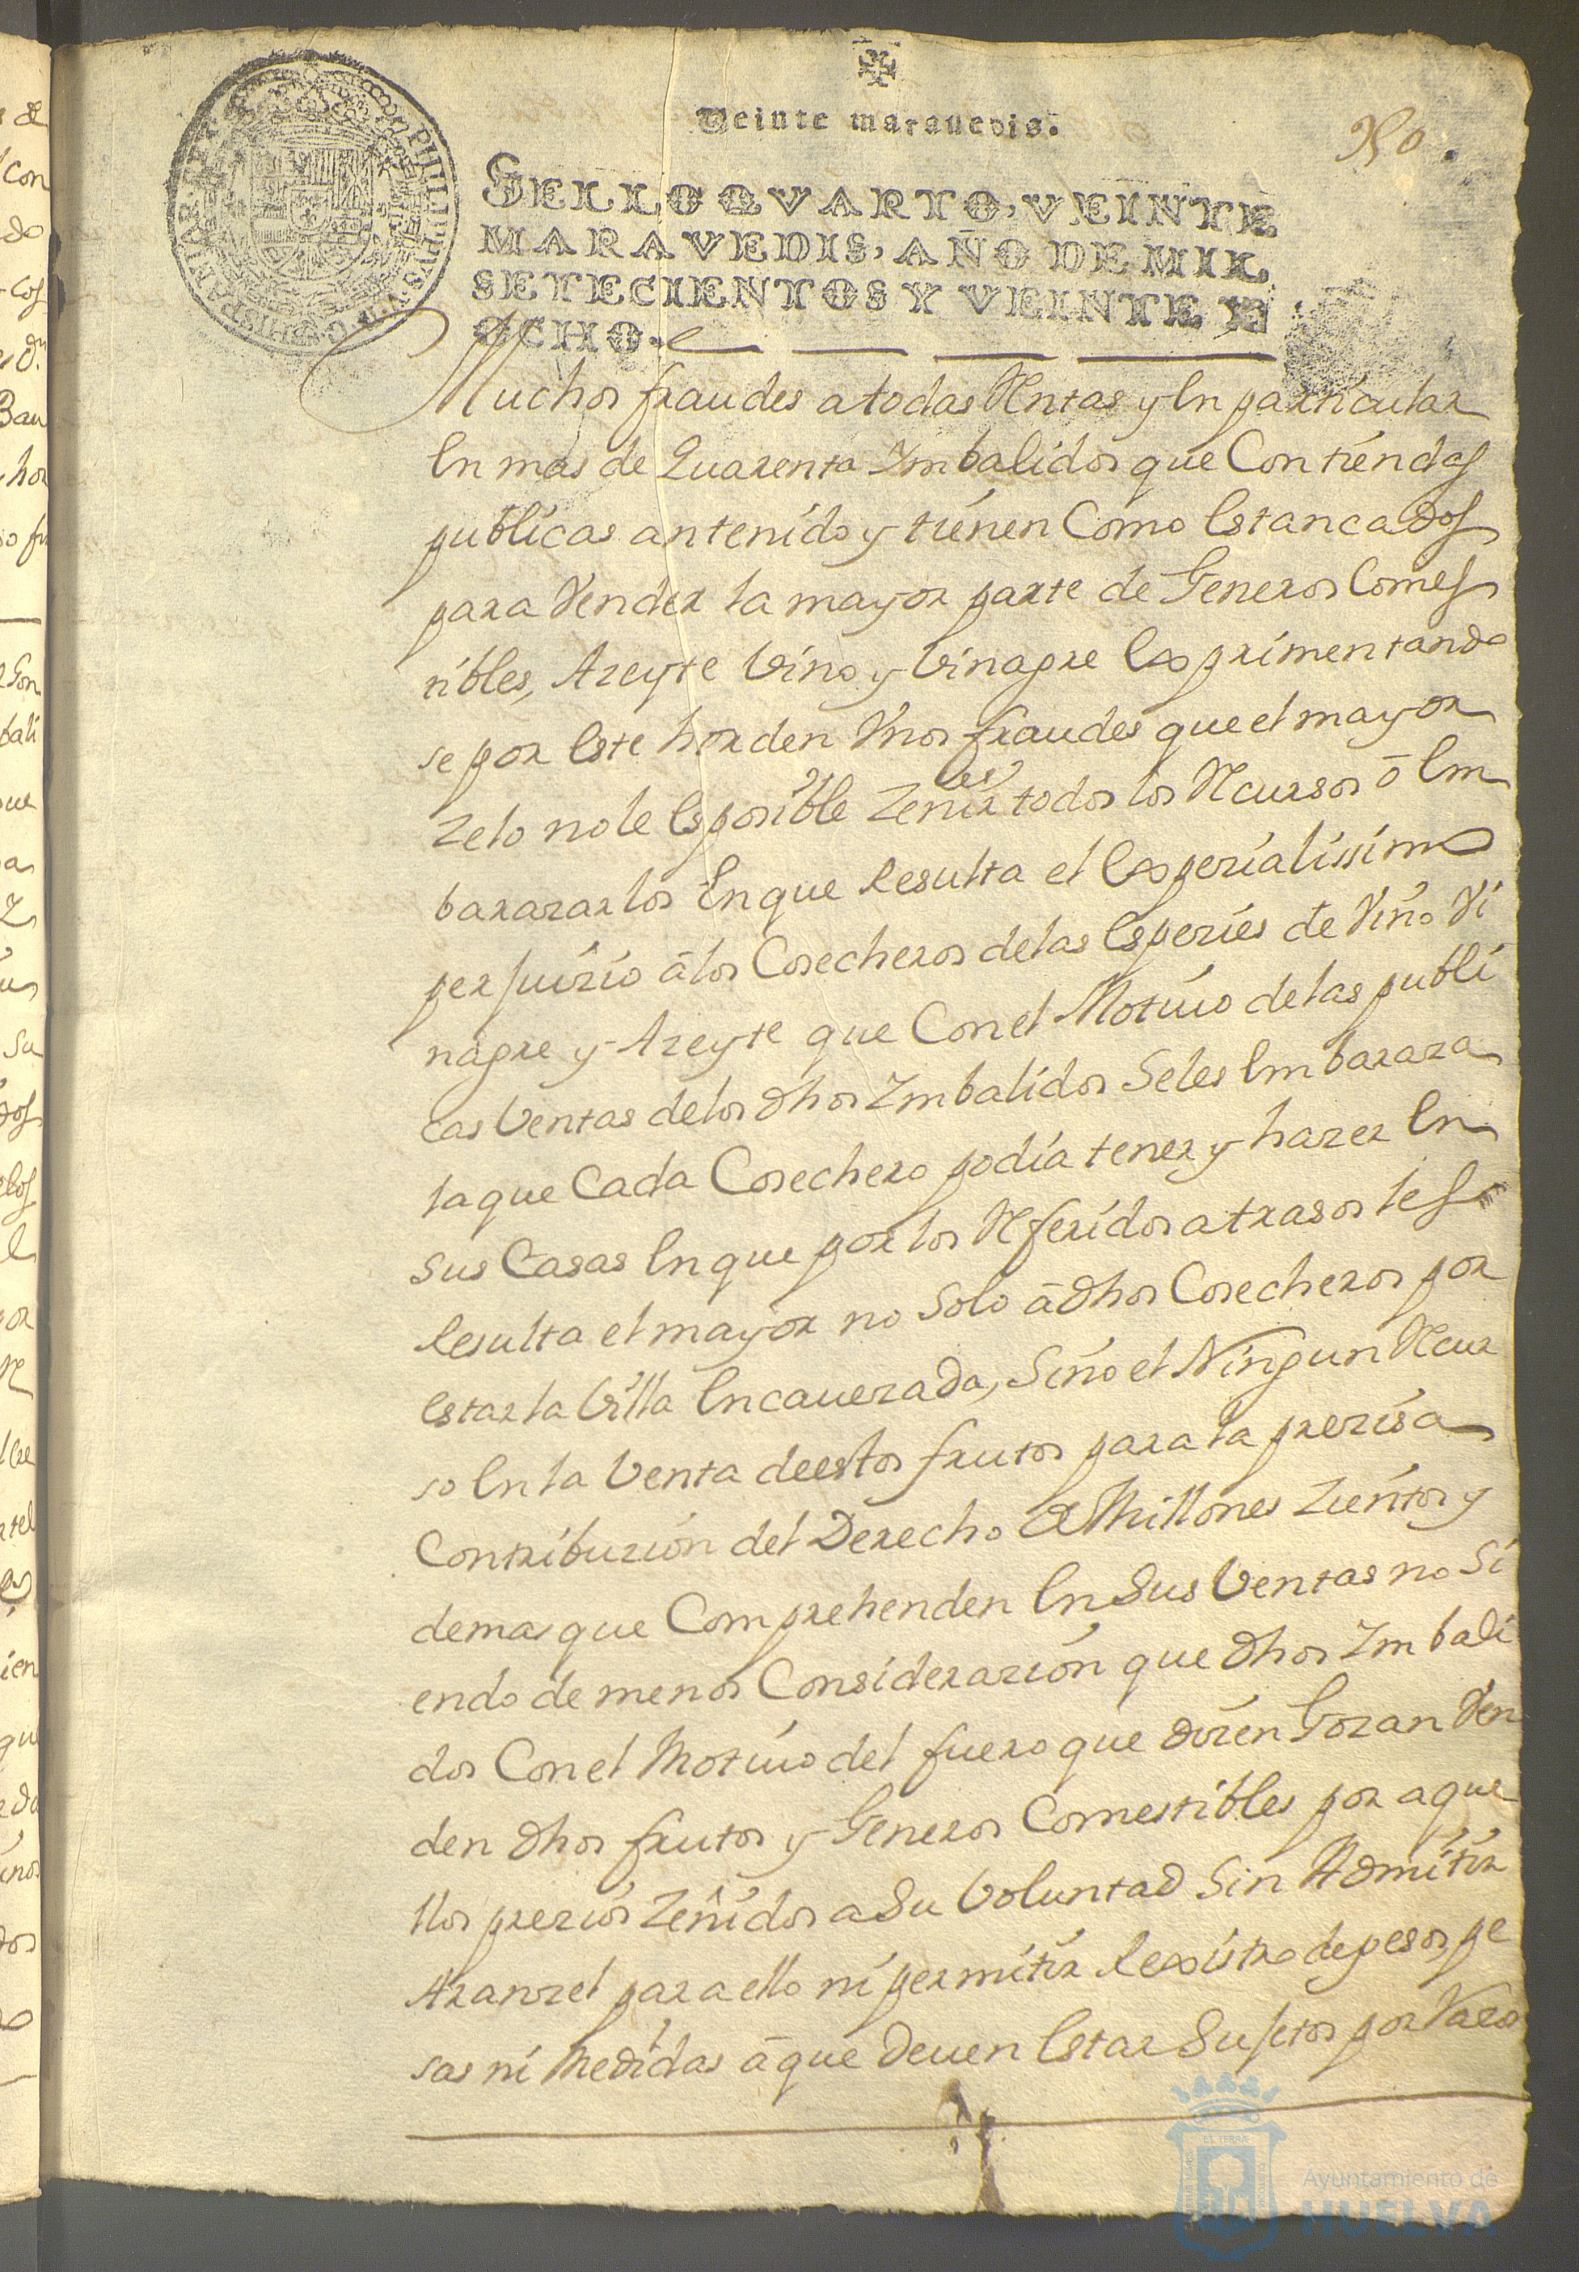 Veinte marauedis.
SELLO QVARTO, VEINTE
MARAVEDIS, AÑO DE MIL
SETECIENTOS Y VEINTE Y
OCHO.
Muchos fraudes a todas Rentas y en particular
en mas de Quarenta Imbalidos que Con tiendas
publicas an tenido y tienen Como estancados
para Vender la mayor parte de Generos Comes
tibles, Azeyte Vino y Vinagre exprimentando
se por este horden Vnos fraudes que el mayor
Zelo no le es posible Zeñir todos los Recursos ō em
barazarlos En que Resulta el expezialissimo
perjuizio ā los Cosecheros de las espezies de Vino Vi
nagre y Azeyte que Con el Motiuo de las publi
cas Ventas de los dhos Imbalidos Se les embaraza
la que Cada Cosechero podia tener y hazer en
sus Casas en que por los Referidos atrasos les
Resulta el mayor no solo ā dhos Cosecheros por
estar la Villa encauezada, Sino el Ningun Recur
so en la Venta de estos frutos para la prezisa
Contribuzion del Derecho de Millones Zientos y
demas que Comprehenden en Sus Ventas no Si
endo de menos Considerazion que dhos Imbali
dos Con el Motiuo del fuero que dizen Gozan Ven
den dhos frutos y Generos Comestibles por aque
llos prezios Zeñidos a Su Voluntad Sin Admitir
Aranzel para ello ni permitir Rexistro de pesos, pe
sas ni Medidas ā que Deuen estar Sujetos por
Ayuntamiento de
HUELVA